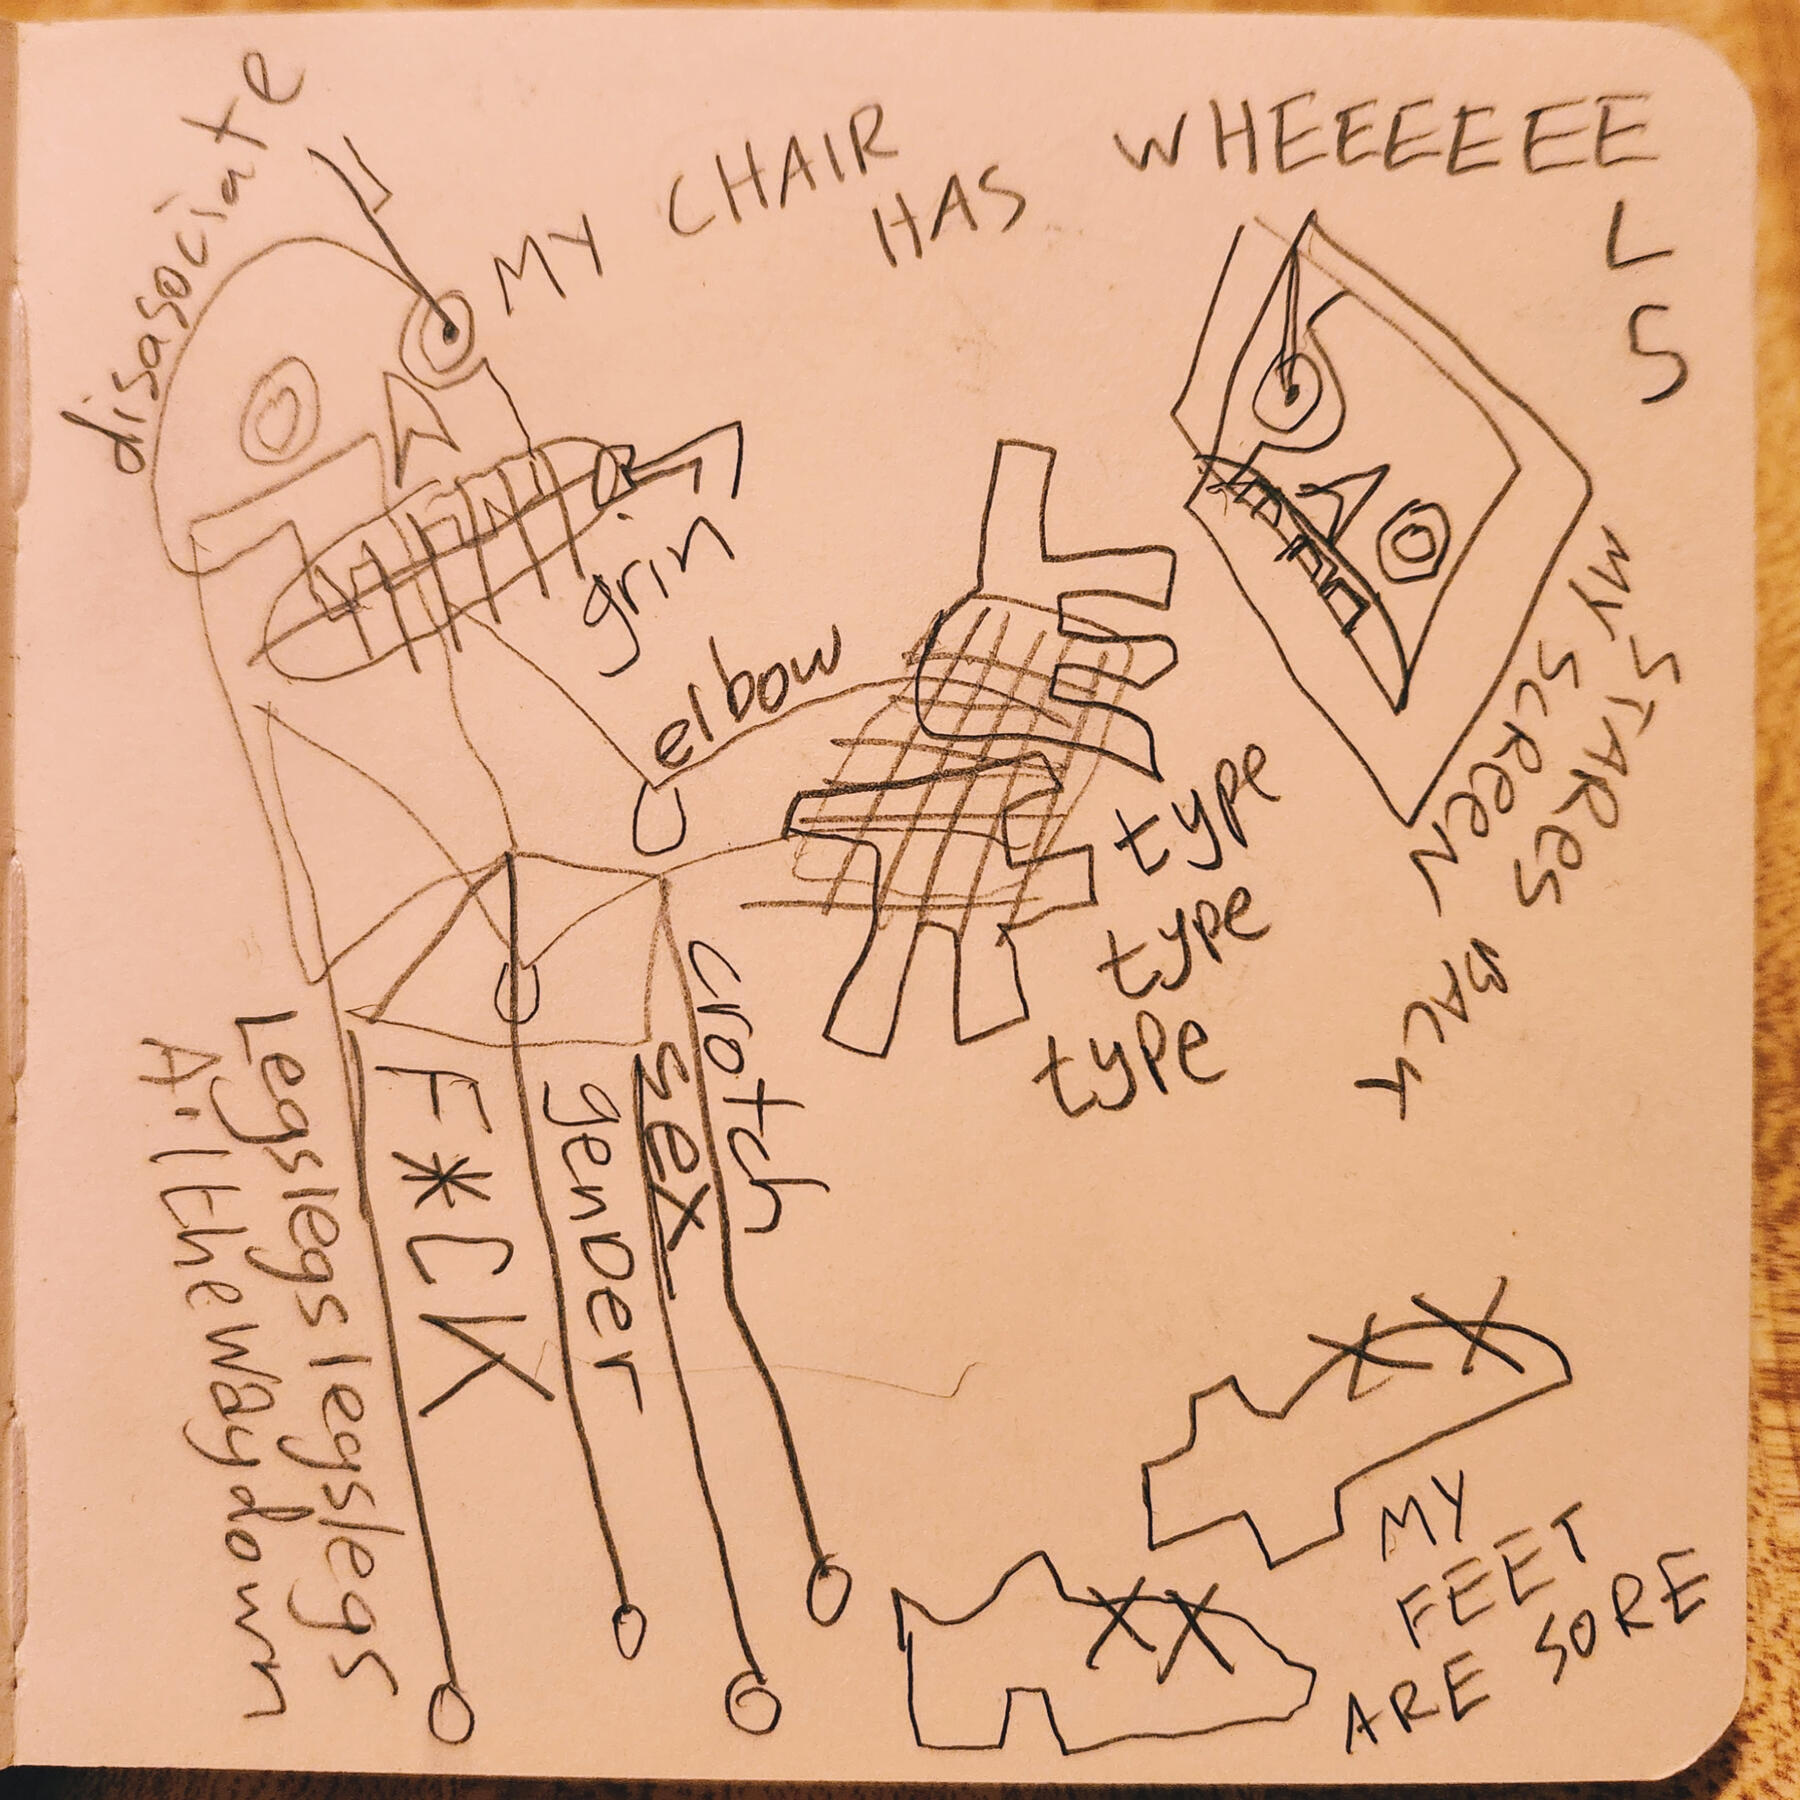 disasociate
MY CHAIR
HAS
WHEEEEEEE
L
S
grin
elbow
type
type
type
MY STARES
SCREEN BACK
crotch
sex
genDer
F*CK
Legslegslegslegs
Allthewaydown
MY
FEET
ARE SORE